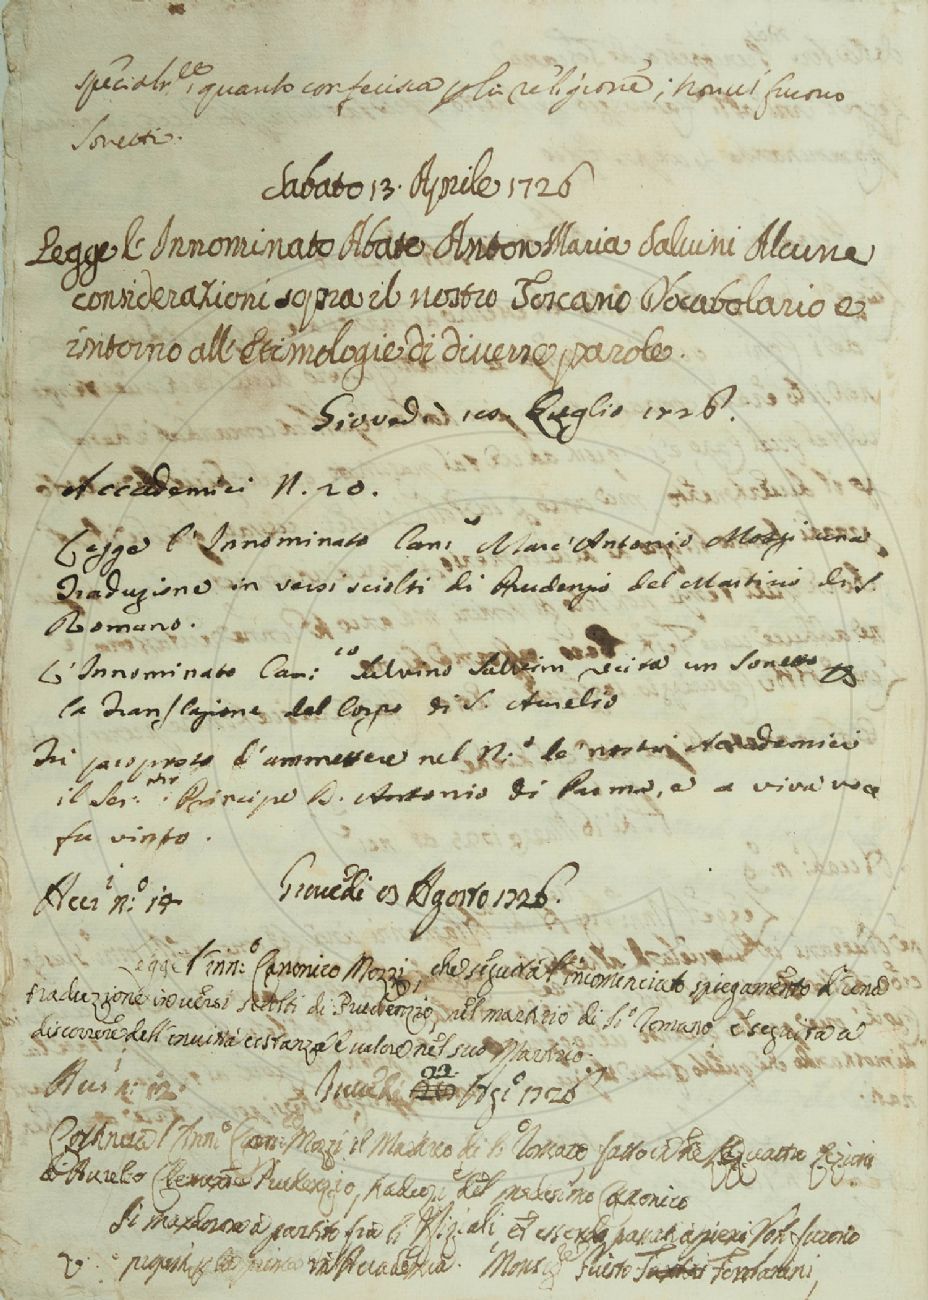 quanto conferiscа religione; non vi furono
Sonetti.
Sabato 13. Aprile 1726
Legge l'Innominato Abate Anton Maria Salvini Alcune
considerazioni sopra il nostro Toscano Vocabolario e
intorno all'Etimologie di diverse parole.
Giovedì 10. Luglio 1726.
Accademici N. 20.
Legge l'Innominato Can:co Marc'Antonio Mozzi una
Traduzione in versi sciolti di Prudenzio del Martirio di S.
Romano.
L'Innominato Can:co Salvino Salvini recita un Sonetto
la Translazione del Corpo di S. Aurelio
Fu proposto d'ammettere nel N.o de' nostri Accademici
il Ser:mo Principe D. Antonio di Parma, e a viva voce
fu vinto.
Acci n.o 14 Giovedì Agosto 1726.
Legge l'Inn:o Canonico Mozzi, che seguita l'incominciato spiegamento d'una
traduzione in versi sciolti di Prudenzio, nel martirio di S.o Romano, e seguita a
discorrere dell' costanza e valore nel suo Martirio.
n.o 12. 22. Ag:o 1726
l'Inn:o Can: Mozzi il Martirio di S.o Romano fatto
di Aurelio Clemente Prudenzio, medesimo Canonico
a partito fra gli
Accademia. Monsig. Giusto Fontanini,